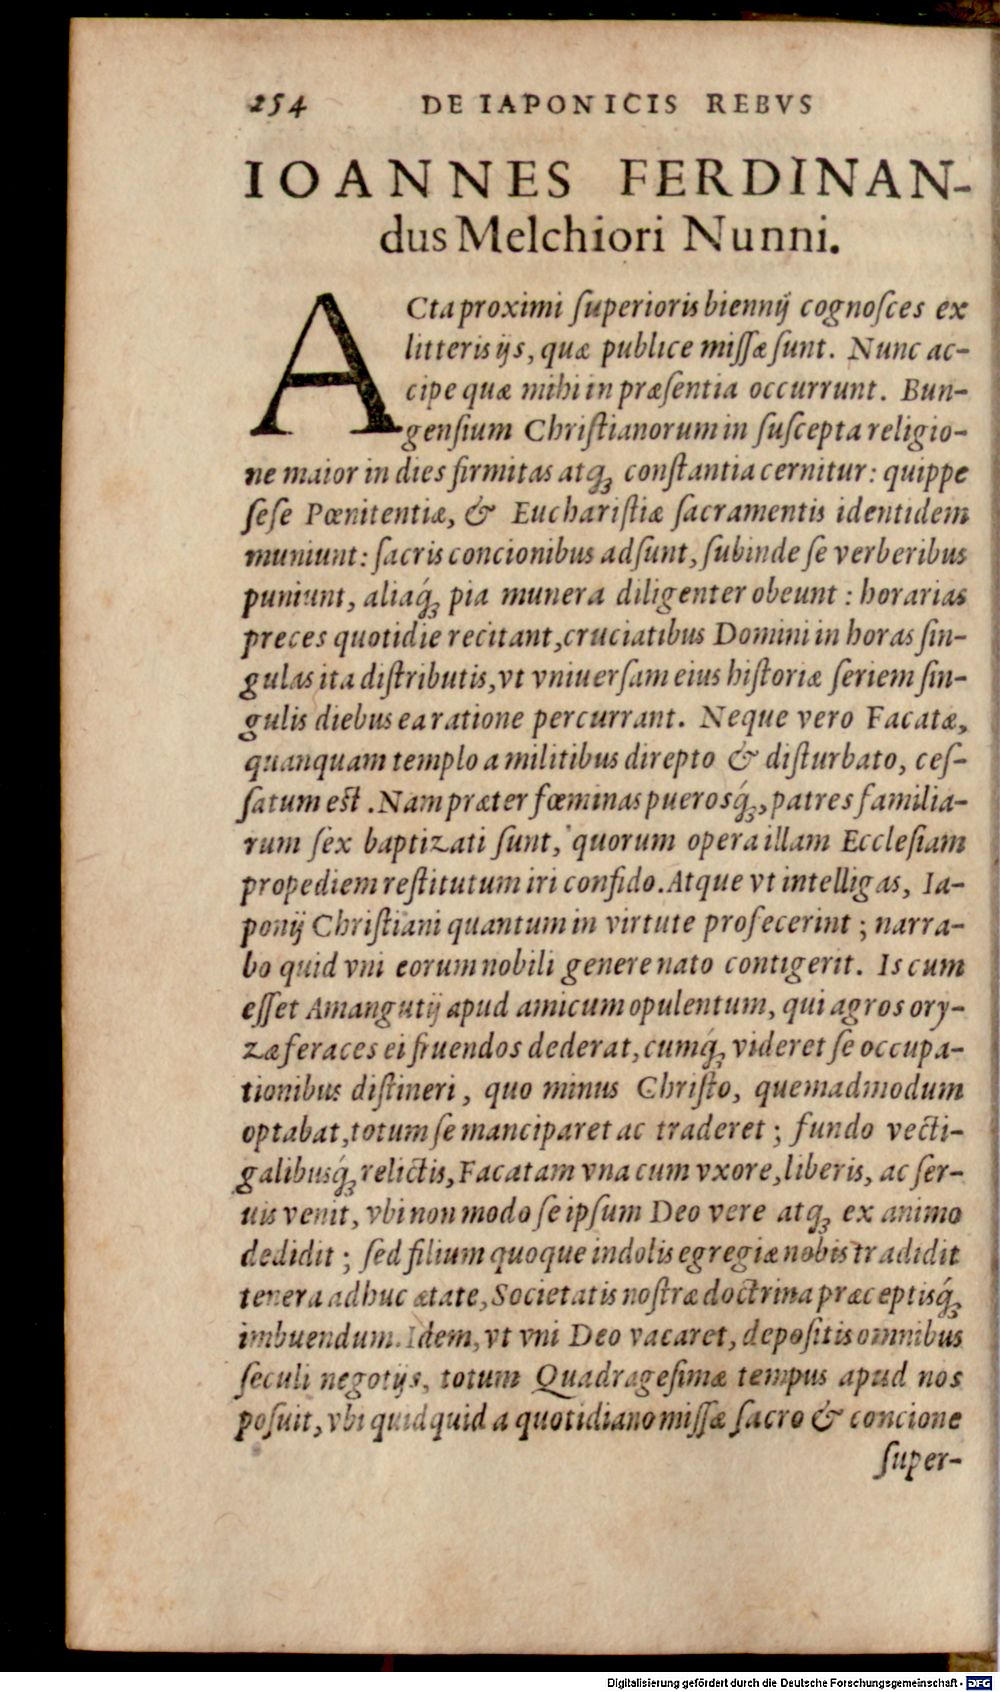 254 DE IAPONICIS REBVS
IOANNES FERDINAN-
dus Melchiori Nunni.
ACta proximi ſuperioris biennij cognoſces ex
litteris ijs, quæ publice miſſæ ſunt. Nunc ac-
cipe quæ mihi in præſentia occurrunt. Bun-
genſium Chriſtianorum in ſuſcepta religio-
ne maior in dies firmitas atqꝫ conſtantia cernitur: quippe
ſeſe Pœnitentiæ, & Euchariſtiæ ſacramentis identidem
muniunt: ſacris concionibus adſunt, ſubinde ſe verberibus
puniunt, aliaq́ꝫ pia munera diligenter obeunt: horarias
preces quotidie recitant, cruciatibus Domini in horas ſin-
gulas ita diſtributis, vt vniuerſam eius hiſtoriæ ſeriem ſin-
gulis diebus ea ratione percurrant. Neque vero Facatæ,
quanquam templo a militibus direpto & diſturbato, ceſ-
ſatum eſt. Nam præter fœminas puerosq́ꝫ, patres familia-
rum ſex baptizati ſunt, quorum opera illam Eccleſiam
propediem reſtitutum iri confido. Atque vt intelligas, Ia-
ponij Chriſtiani quantum in virtute profecerint; narra-
bo quid vni eorum nobili genere nato contigerit. Is cum
eſſet Amangutij apud amicum opulentum, qui agros ory-
zæ feraces ei fruendos dederat, cumq́ꝫ videret ſe occupa-
tionibus diſtineri, quo minus Chriſto, quemadmodum
optabat, totum ſe manciparet ac traderet; fundo vecti-
galibusq́ꝫ relictis, Facatam vna cum vxore, liberis, ac ſer-
uis venit, vbi non modo ſe ipſum Deo vere atqꝫ ex animo
dedidit; ſed filium quoque indolis egregiæ nobis tradidit
tenera adhuc ætate, Societatis noſtræ doctrina præceptisq́ꝫ
imbuendum. Idem, vt vni Deo vacaret, depoſitis omnibus
ſeculi negotijs, totum Quadrageſimæ tempus apud nos
poſuit, vbi quidquid a quotidiano miſſæ ſacro & concione
ſuper-
Digitalisierung gefördert durch die Deutsche Forschungsgemeinschaft - DFG